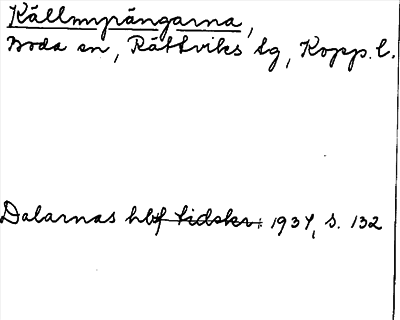 Källmyrängarna,
Boda sn, Rättviks tg, Kopp. l.
Dalarnas hbf tidskr. 1937, s. 132